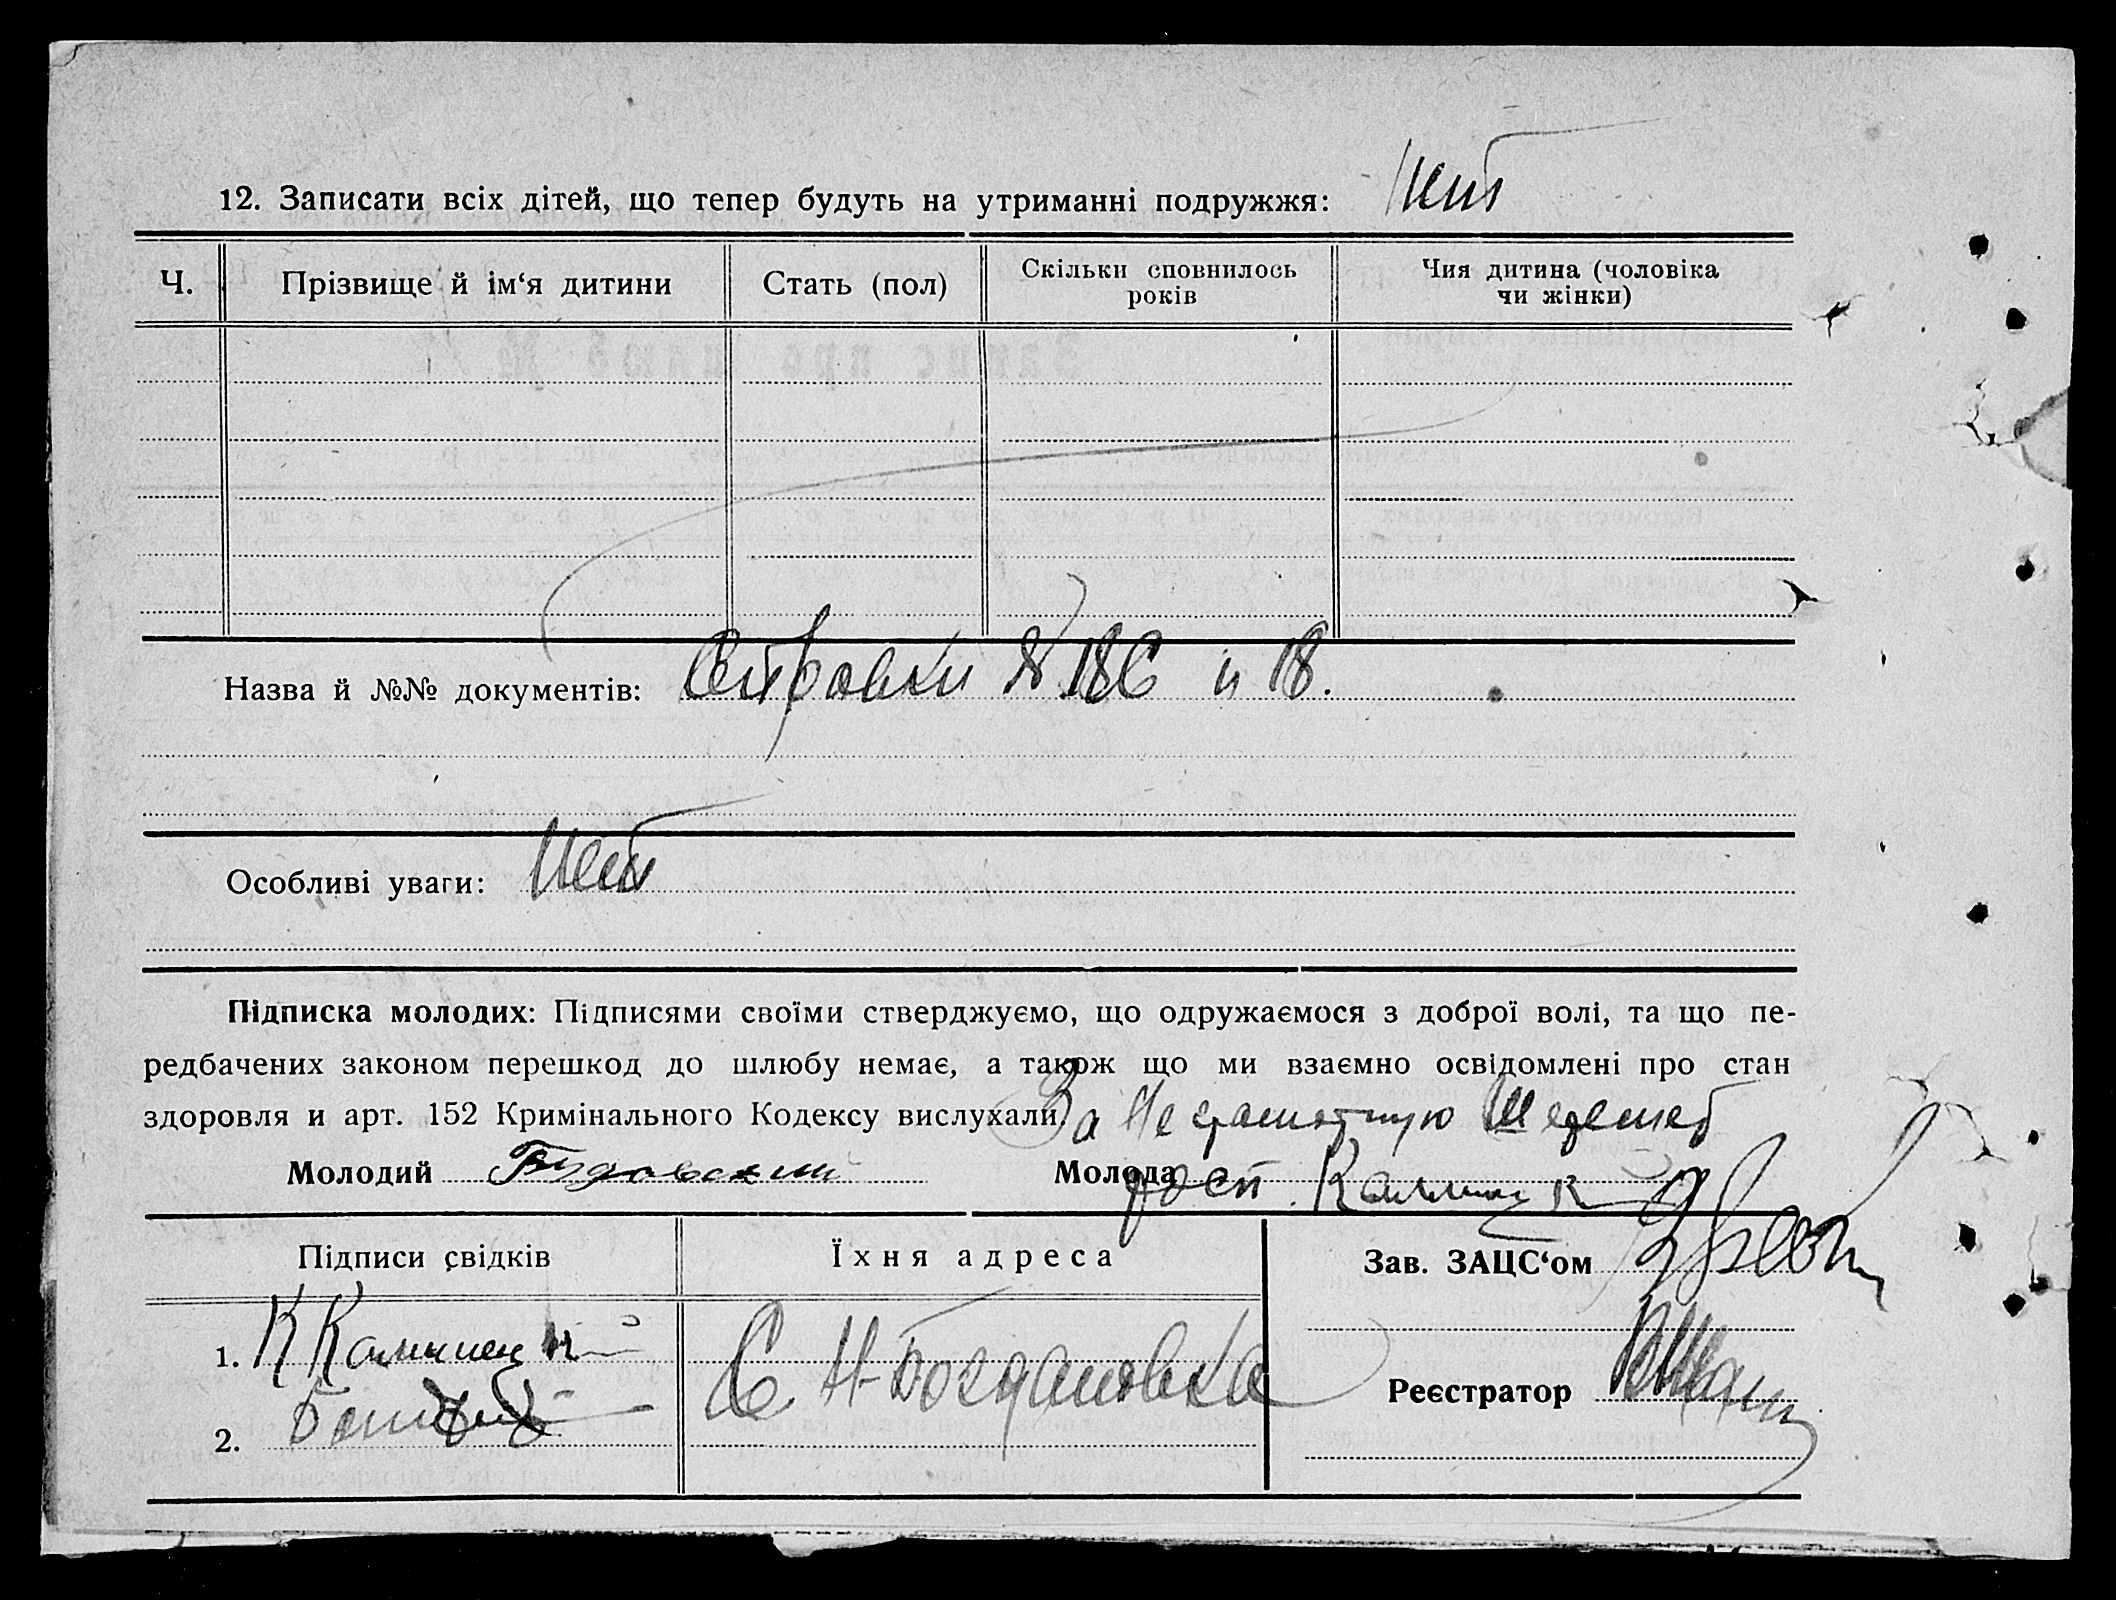 12. Записати всіх дітей, що тепер будуть на утриманні подружжя: Нет
Ч. Прізвище й ім‘я дитини Стать (пол) Скільки сповнилось років Чия дитина (чоловіка чи жінки)
Назва й №№ документів: Справки № 186 и 18.
Особливі уваги: Нет
Підписка молодих: Підписями своїми стверджуємо, що одружаємося з доброї волі, та що пе-
редбачених законом перешкод до шлюбу немає, а також що ми взаємно освідомлені про стан
здоровля и арт. 152 Кримінального Кодексу вислухали.
За Неграмотную
Молодий Молода расп.
Підписи свідків Їхня адреса Зав. ЗАЦС‘ом
1. К
С. Н-Богдановка
Реєстратор
2.